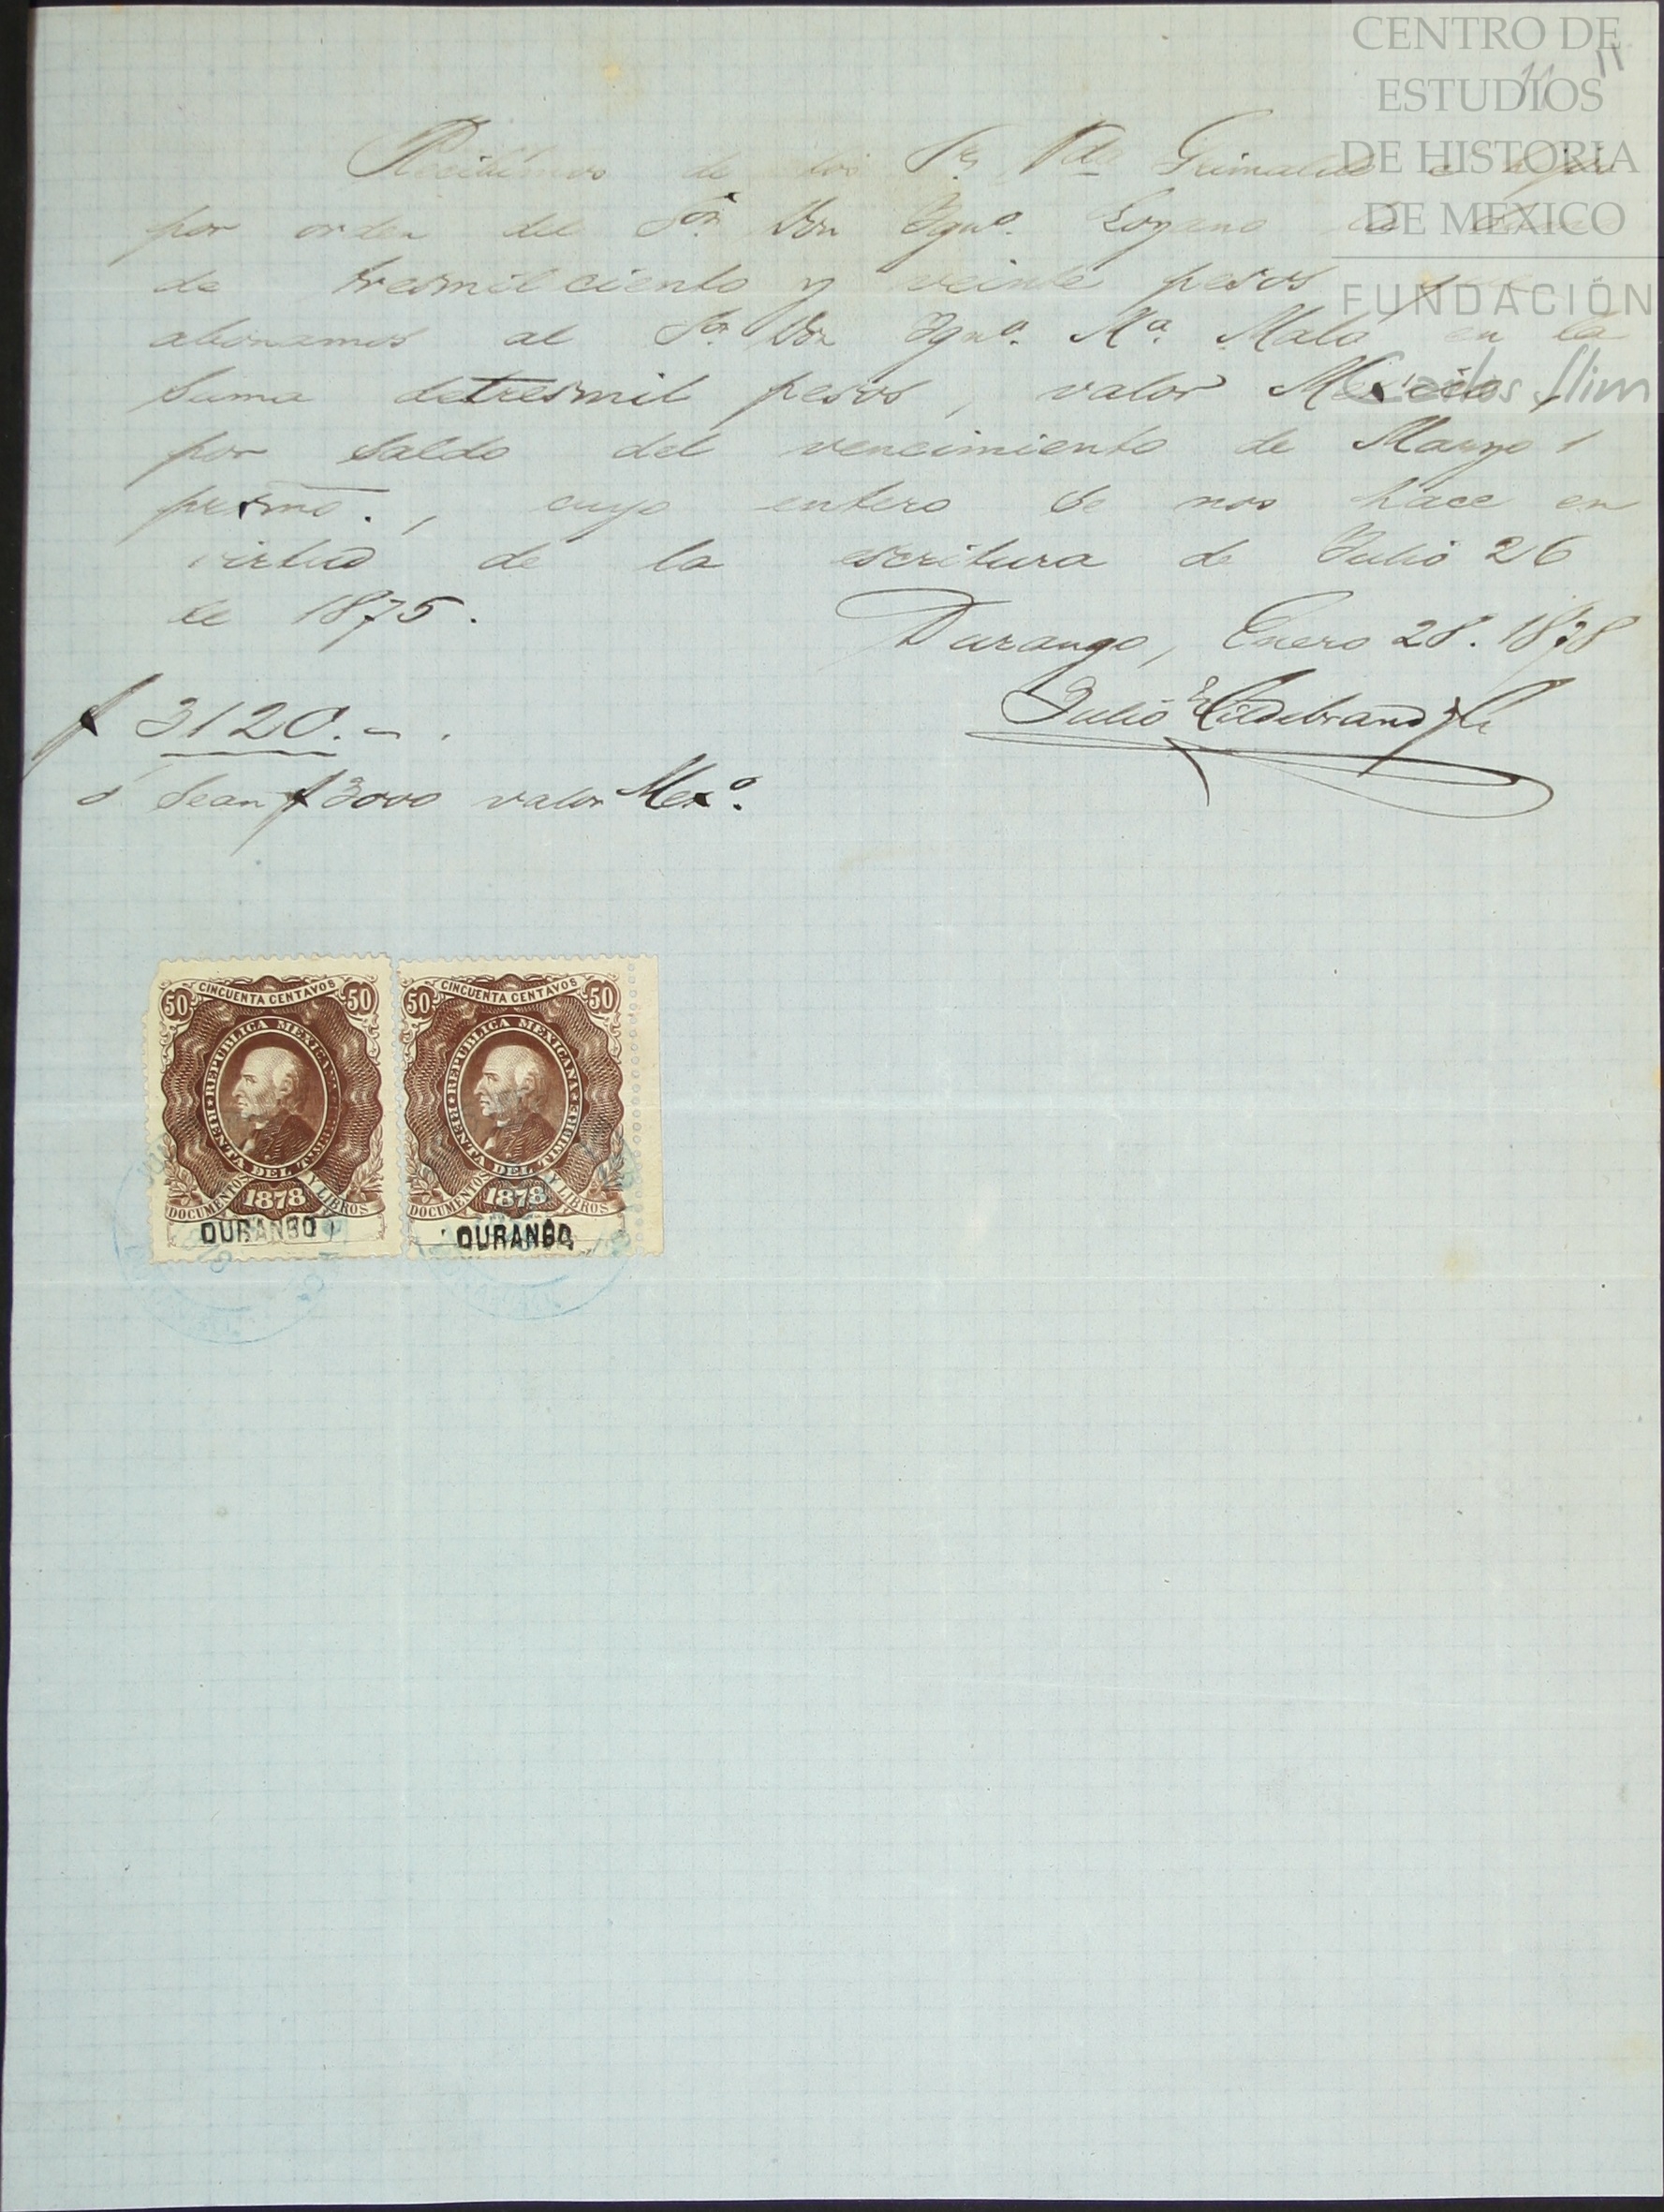 CENTRO DE
ESTUDIOS
DE HISTORIA
DE MÉXICO
FUNDACIÓN
Carlos Slim
11
Recibimos de los Srs. Vda Grimaldo e hijos
por orden del Sor. Don Ygno. Lozano la suma
de tresmil ciento y veinte pesos que
abonamos al Sor. Don Ygno. Ma. Malo en la
suma de tresmil pesos, valor Mexico,
por saldo del vencimiento de Marzo 1
prsmo., cuyo entero se nos hace en
virtud de la escritura de Julio 26
de 1875.
Durango, Enero 28. 1878
Julio Hildebrand
$ 3120.-.
ó sean $ 3000 valor Mexo.
50 CINCUENTA CENTAVOS 50
REPUBLICA MEXICANA
RENTA DEL TIMBRE
DOCUMENTOS Y LIBROS
1878
DURANGO
50 CINCUENTA CENTAVOS 50
REPUBLICA MEXICANA
RENTA DEL TIMBRE
DOCUMENTOS Y LIBROS
1878
DURANGO